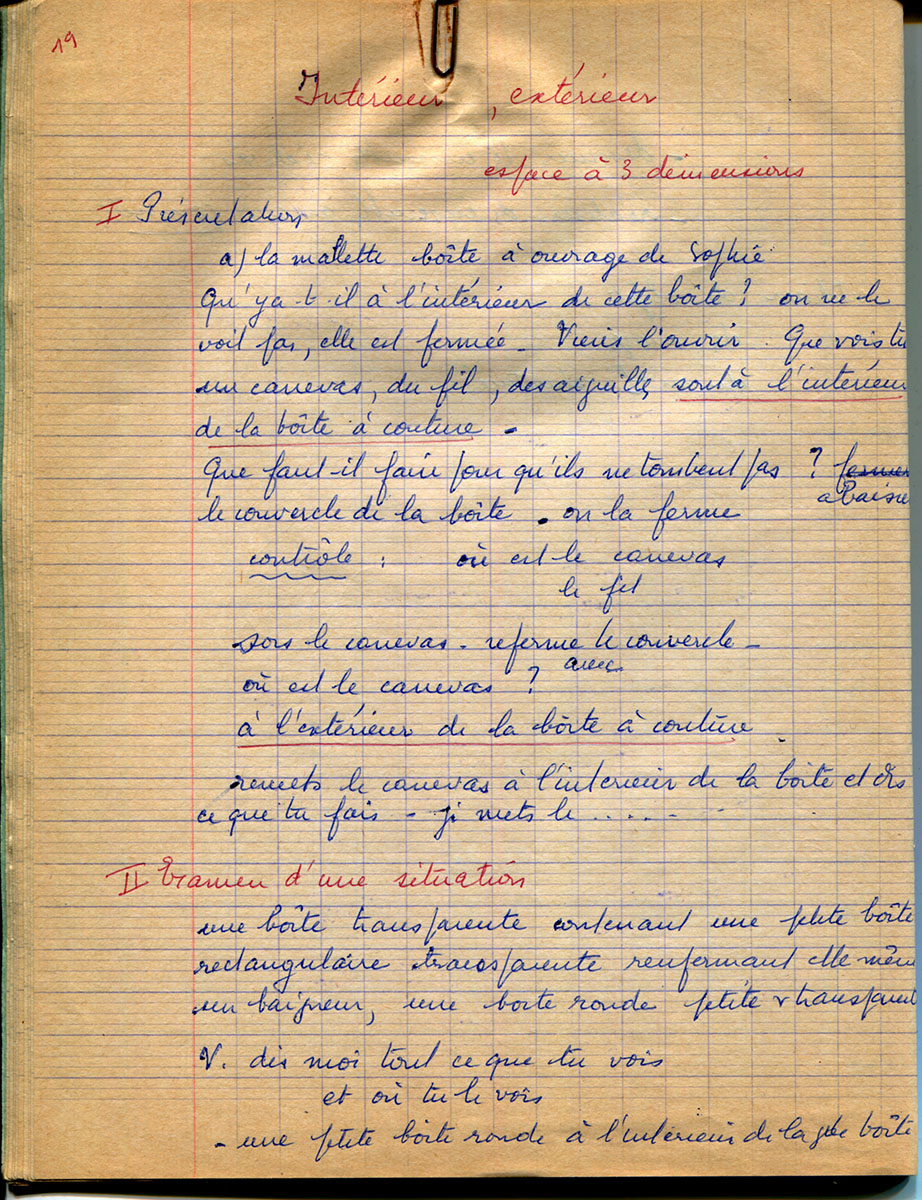 19
Intérieur, extérieur
espace à 3 dimensions
I Présentation
a) la mallette boîte à ouvrage de Sophie
Qu'y a-t-il à l'intérieur de cette boîte ? on ne le
voit pas, elle est fermée - Viens l'ouvrir. Que vois tu
un canevas, du fil, des aiguilles, sont à l'intérieur
de la boîte à couture -
Que faut-il faire pour qu'ils ne tombent pas ? fermer
abaisse
le couvercle de la boîte. on la ferme
contrôle : où est le canevas
le fil
sors le canevas - referme le couvercle -
où est le canevas ?
à l'extérieur de la boîte à couture
remets le canevas à l'interieur de la boîte et dis
ce que tu fais - je mets le .......
II Examen d'une situation
une boîte transparente contenant une petite boîte
rectangulaire transparente renfermant elle même
un baigneur, une boite ronde petite transparent
V. dis moi tout ce que tu vois
et où tu le vois
- une petite boîte ronde à l'intérieur de la gde boîte